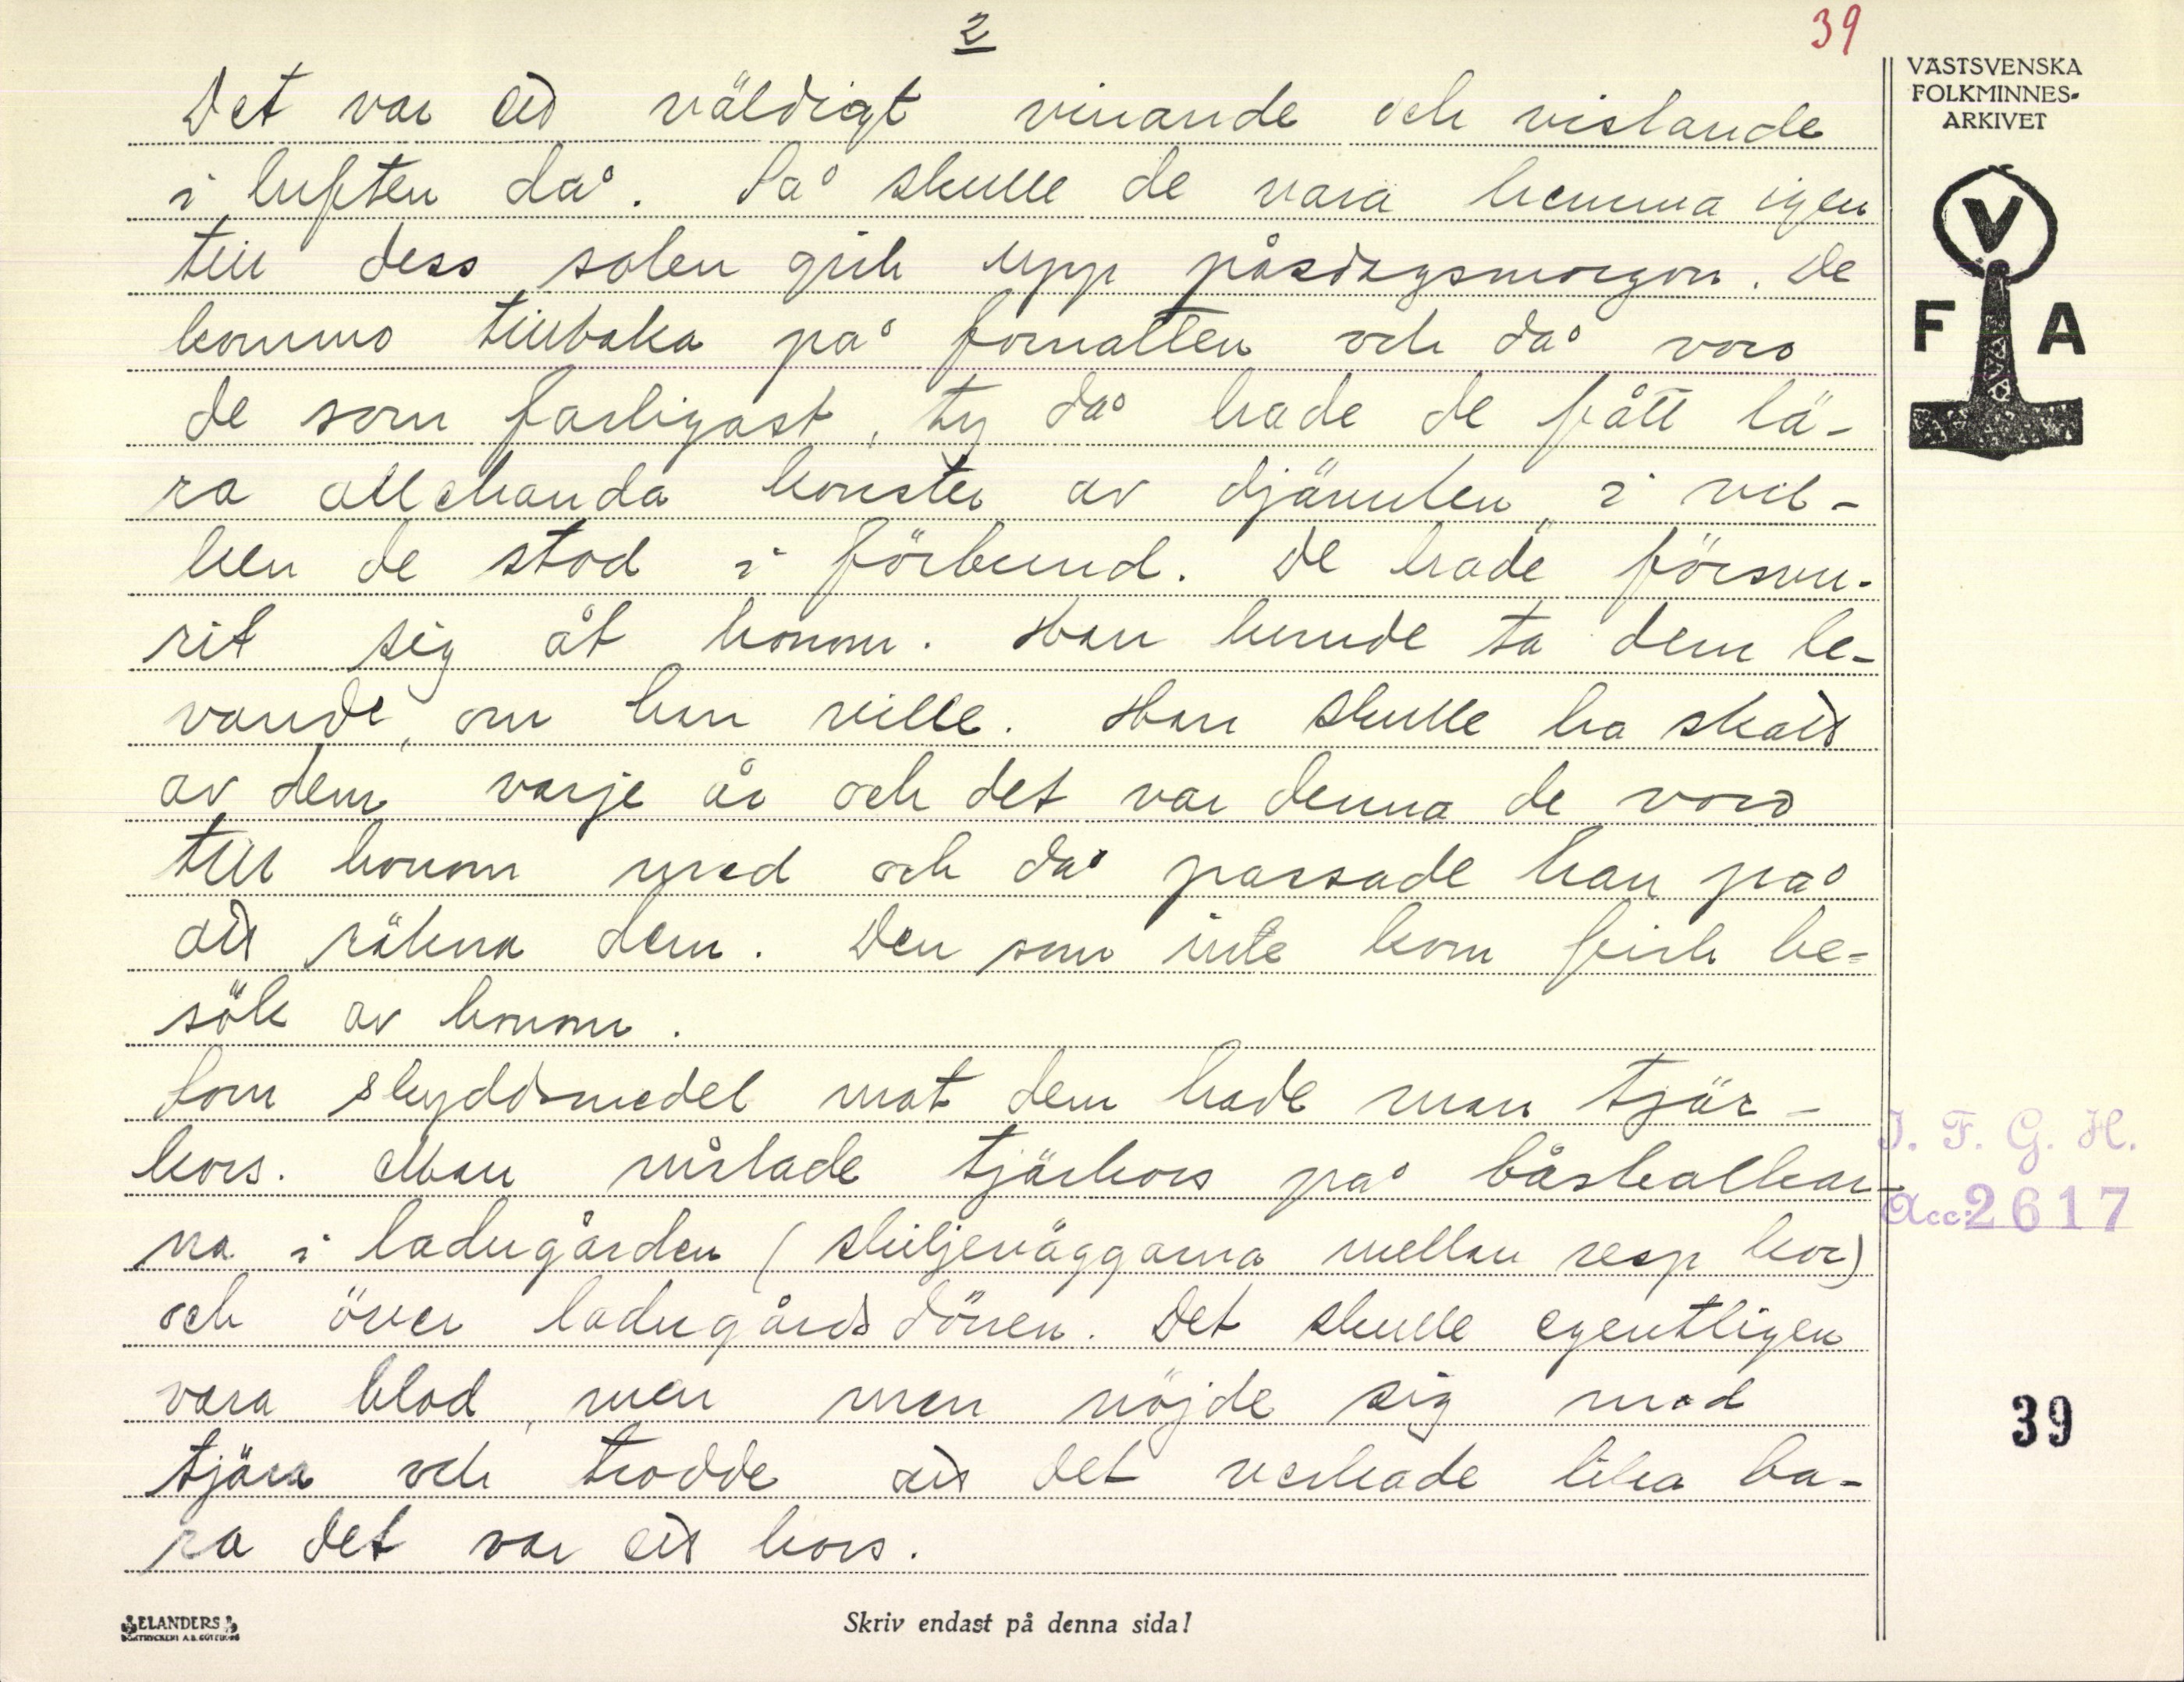 2
39
Det var ett väldigt vinande och vislande
i luften då. Så skulle de vara hemma igen
till dess solen gick upp påsdagsmorgon. De
kommo tillbaka på fornatten och då voro
de som farligast, ty då hade de fått lä-
ra allehanda konster av djävulen, i vil-
ken de stod i förbund. De hade försvu-
rit sig åt honom. Han kunde ta dem le-
vande, om han ville. Han skulle ha skatt
av dem varje år och det var denna de voro
till honom med och då passade han på
att räkna dem. Den som inte kom fick be-
sök av honom.
Som skyddsmedel mot dem hade man tjär-
kors. Man målade tjärkors på båsbalkar-
na i ladugården (skiljeväggarna mellan resp kor)
och över ladugårdsdörren. Det skulle egentligen
vara blod, men man nöjde sig med
tjära och trodde att det verkade lika ba-
ra det var ett kors.
VÄSTSVENSKA
FOLKMINNES-
ARKIVET
V
F A
I. F. G. H.
Acc: 2617
39
ELANDERS
BOKTRYCKERI A.B. GÖTEBORG
Skriv endast på denna sida!